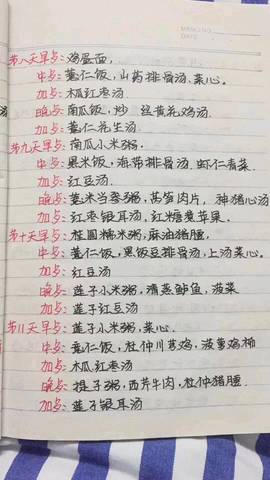 DATE
第八天早点: 鸡蛋面,
中点: 薏仁饭, 山药排骨汤, 菜心。
加点: 木瓜红枣汤
晚点: 南瓜饭, 炒 丝黄花鸡汤
加点: 薏仁花生汤
第九天早点: 南瓜小米粥.
中点: 黑米饭, 海带排骨汤. 虾仁青菜
加点: 红豆汤
晚点: 薏米当枣粥, 莴笋肉片, 神猪心汤
加点: 红枣银耳汤, 红糖煮苹果.
第十天早点: 桂圆糯米粥, 麻油猪腰,
中点: 薏仁饭, 黑豆排骨汤, 上汤菜心
加点: 红豆汤
晚点: 莲子小米粥, 清蒸鲈鱼, 菠菜
加点: 莲子红豆汤
第11天早点: 莲子小米粥, 菜心.
中点: 薏仁饭, 杜仲川芎鸡, 菠萝鸡柳
加点: 木瓜红枣汤
晚点: 提子粥, 西芹牛肉, 杜仲猪腰
加点: 莲子银耳汤